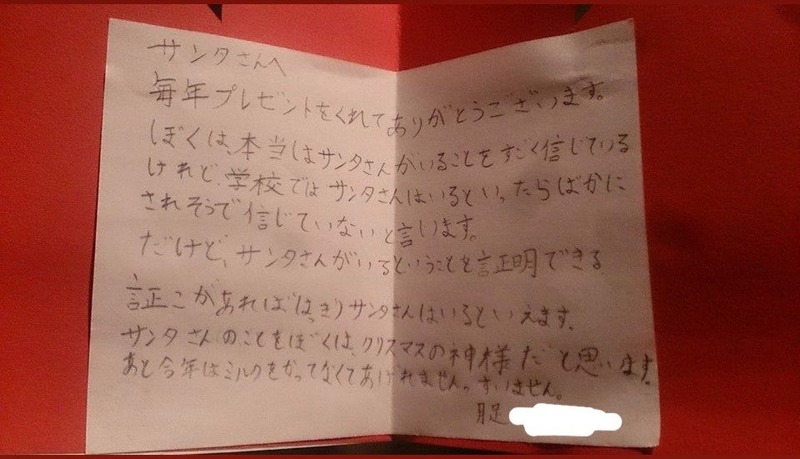 サンタさんへ
毎年プレゼントをくれてありがとうございます。
ぼくは、本当はサンタさんがいることをすごく信じている
けれど、学校ではサンタさんはいるといったらばかに
されそうで信じていないと言います。
だけど、サンタさんがいるということを証明できる
証こがあればはっきりサンタさんはいるといえます。
サンタさんのことをぼくは、クリスマスの神様だと思います。
あと今年はミルクをかってなくてあげれません。すいません。